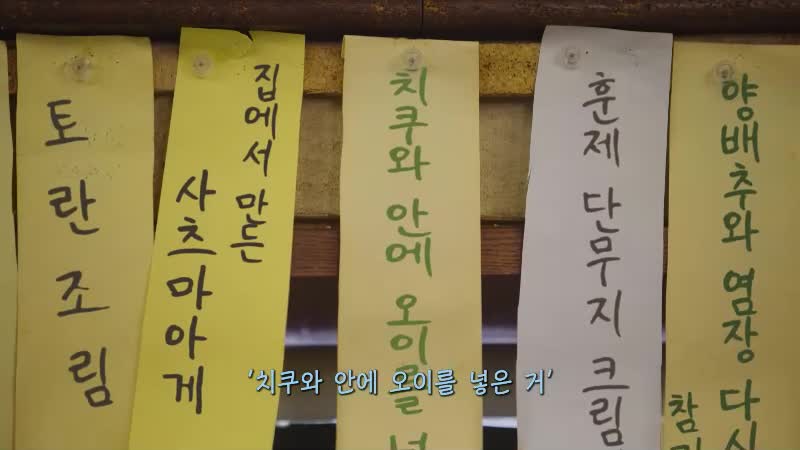 토란조림
집에서 만든
사츠마아게
치쿠와 안에 오이를 넣
훈제 단무지 크림
양배추와 염장 다시
참기
'치쿠와 안에 오이를 넣은 거'